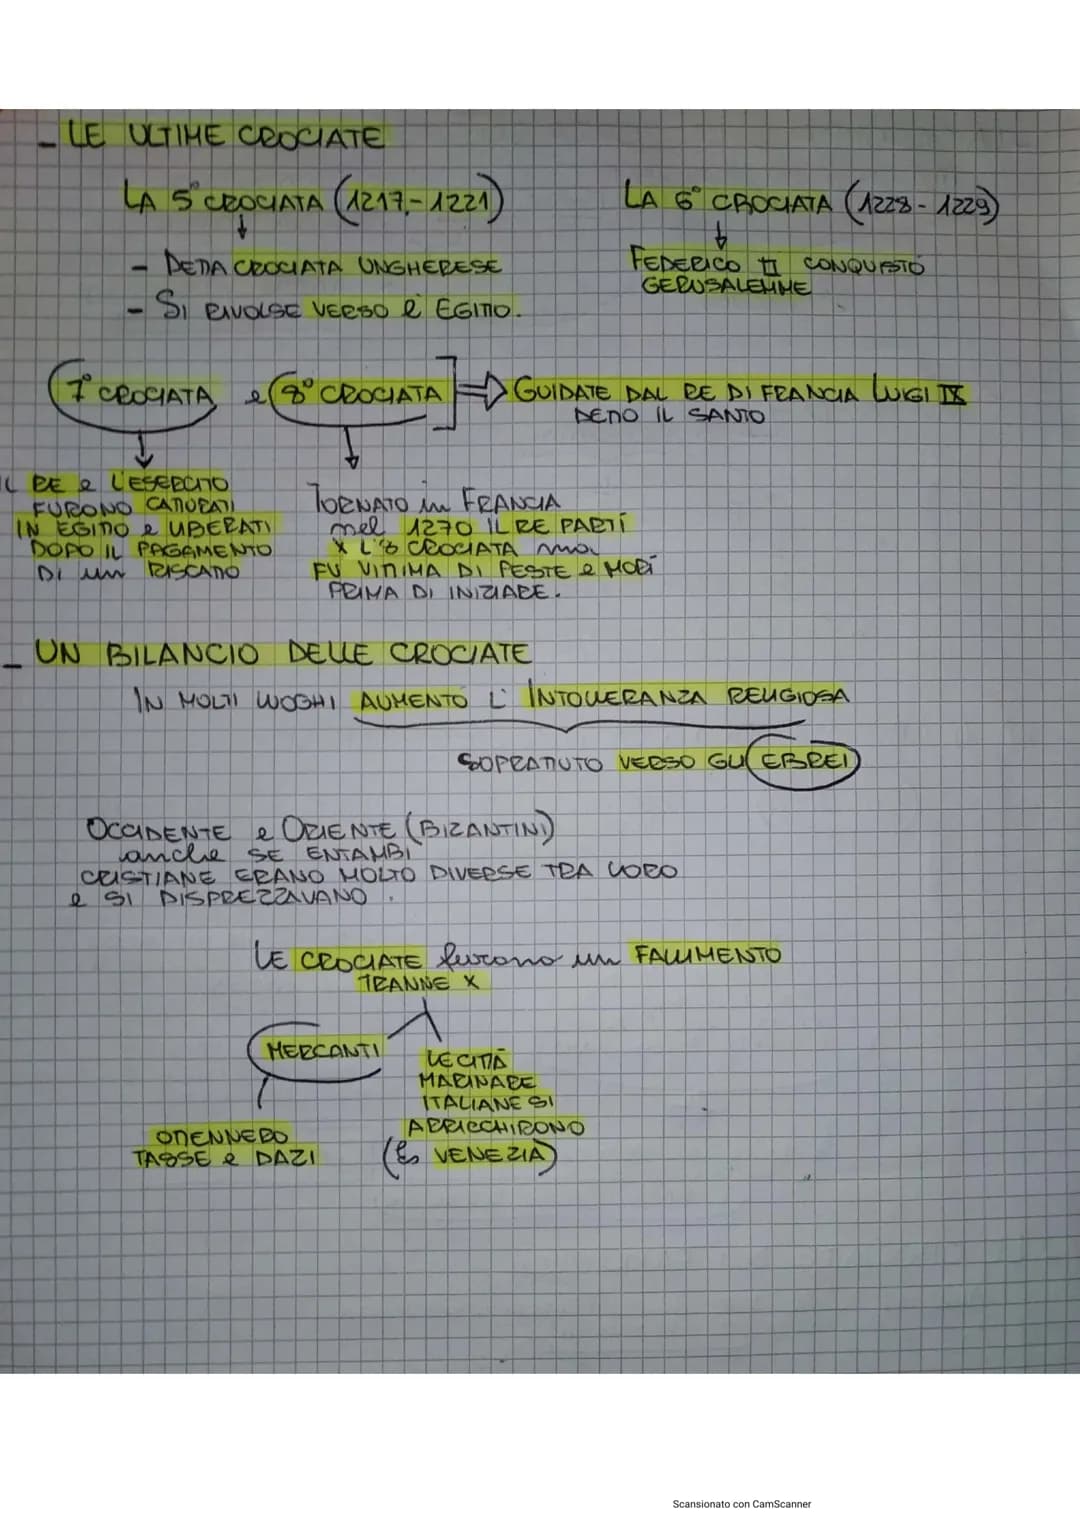 - LE ULTIME CROCIATE
LA 5° CROCIATA (1217-1221)
- DETTA CROCIATA UNGHERESE
- SI RIVOLSE VERSO l'EGITTO.
LA 6° CROCIATA (1228-1229)
FEDERICO II CONQUISTÒ
GERUSALEMME
7° CROCIATA e 8° CROCIATA ⇒ GUIDATE DAL RE DI FRANCIA LUIGI IX
DETTO IL SANTO
IL RE e L'ESERCITO
FURONO CATTURATI
IN EGITTO e LIBERATI
DOPO IL PAGAMENTO
DI un RISCATTO
TORNATO in FRANCIA
nel 1270 IL RE PARTÌ
X L'8 CROCIATA ma
FU VITTIMA DI PESTE e MORÌ
PRIMA DI INIZIARE.
- UN BILANCIO DELLE CROCIATE
IN MOLTI LUOGHI AUMENTÒ L'INTOLLERANZA RELIGIOSA
SOPRATTUTTO VERSO GLI EBREI
OCCIDENTE e ORIENTE (BIZANTINI)
anche SE ENTAMBI
CRISTIANE ERANO MOLTO DIVERSE TRA LORO
e SI DISPREZZAVANO.
LE CROCIATE furono un FALLIMENTO
TRANNE X
MERCANTI
OTTENNERO
TASSE e DAZI
LE CITTÀ
MARINARE
ITALIANE SI
ARRICCHIRONO
(Es VENEZIA)
Scansionato con CamScanner